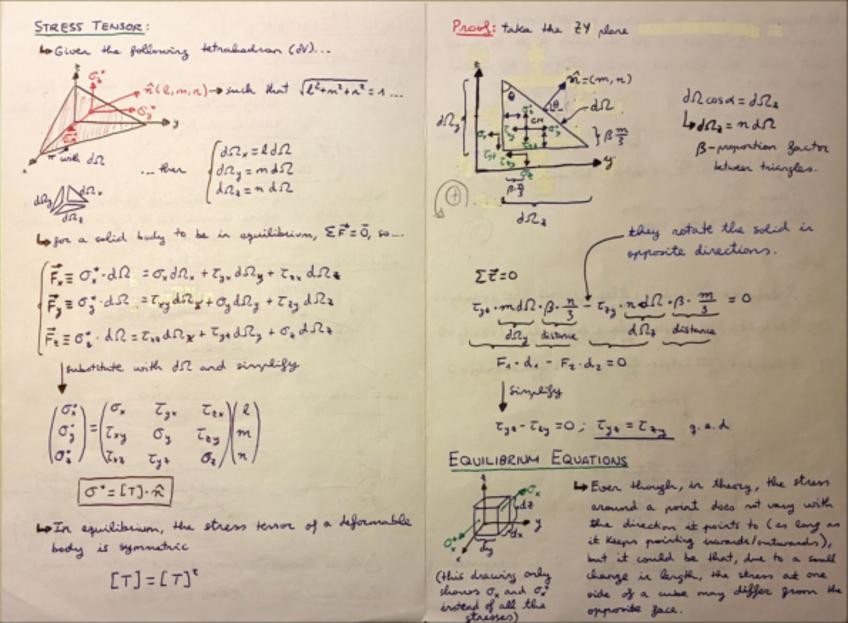 STRESS TENSOR:
↳ Given the following tetrahedron (dV)...
z
σ*z
n̂(l,m,n) → such that √(l²+m²+n²) = 1 ...
σ*y
y
σ*x
x
π with dΩ
... then
dΩx = l dΩ
dΩy = m dΩ
dΩz = n dΩ
dΩy dΩx
dΩz
↳ for a solid body to be in equilibrium, ΣF⃗ = 0⃗, so...
F⃗x ≡ σ*x · dΩ = σx dΩx + τyx dΩy + τzx dΩz
F⃗y ≡ σ*y · dΩ = τxy dΩx + σy dΩy + τzy dΩz
F⃗z ≡ σ*z · dΩ = τxz dΩx + τyz dΩy + σz dΩz
substitute with dΩ and simplify
(σ*x) = (σx τyx τzx) (l)
(σ*y) (τxy σy τzy) (m)
(σ*z) (τxz τyz σz) (n)
σ* = [T] · n̂
↳ In equilibrium, the stress tensor of a deformable
body is symmetric
[T] = [T]ᵗ
Proof: take the ZY plane
z
n̂ = (m,n)
θ
θ
dΩ
dΩy
σ*z
GM
σ*y
σy
τyz
τzy
σz
β m/3
y
β n/3
dΩz
(+)
dΩ cos α = dΩz
↳ dΩz = n dΩ
β - proportion factor
between triangles.
they rotate the solid in
opposite directions.
Στ⃗ = 0
τyz · m dΩ · β · n/3 - τzy · n dΩ · β · m/3 = 0
dΩy distance dΩz distance
F₁ · d₁ - F₂ · d₂ = 0
simplify
τyz - τzy = 0 ; τyz = τzy q.e.d
EQUILIBRIUM EQUATIONS
z
σx
dz
y
dx
dy
σ*x
(this drawing only
shows σx and σ*x
instead of all the
stresses)
↳ Even though, in theory, the stress
around a point does not vary with
the direction it points to (as long as
it keeps pointing inwards/outwards),
but it could be that, due to a small
change in length, the stress at one
side of a cube may differ from the
opposite face.